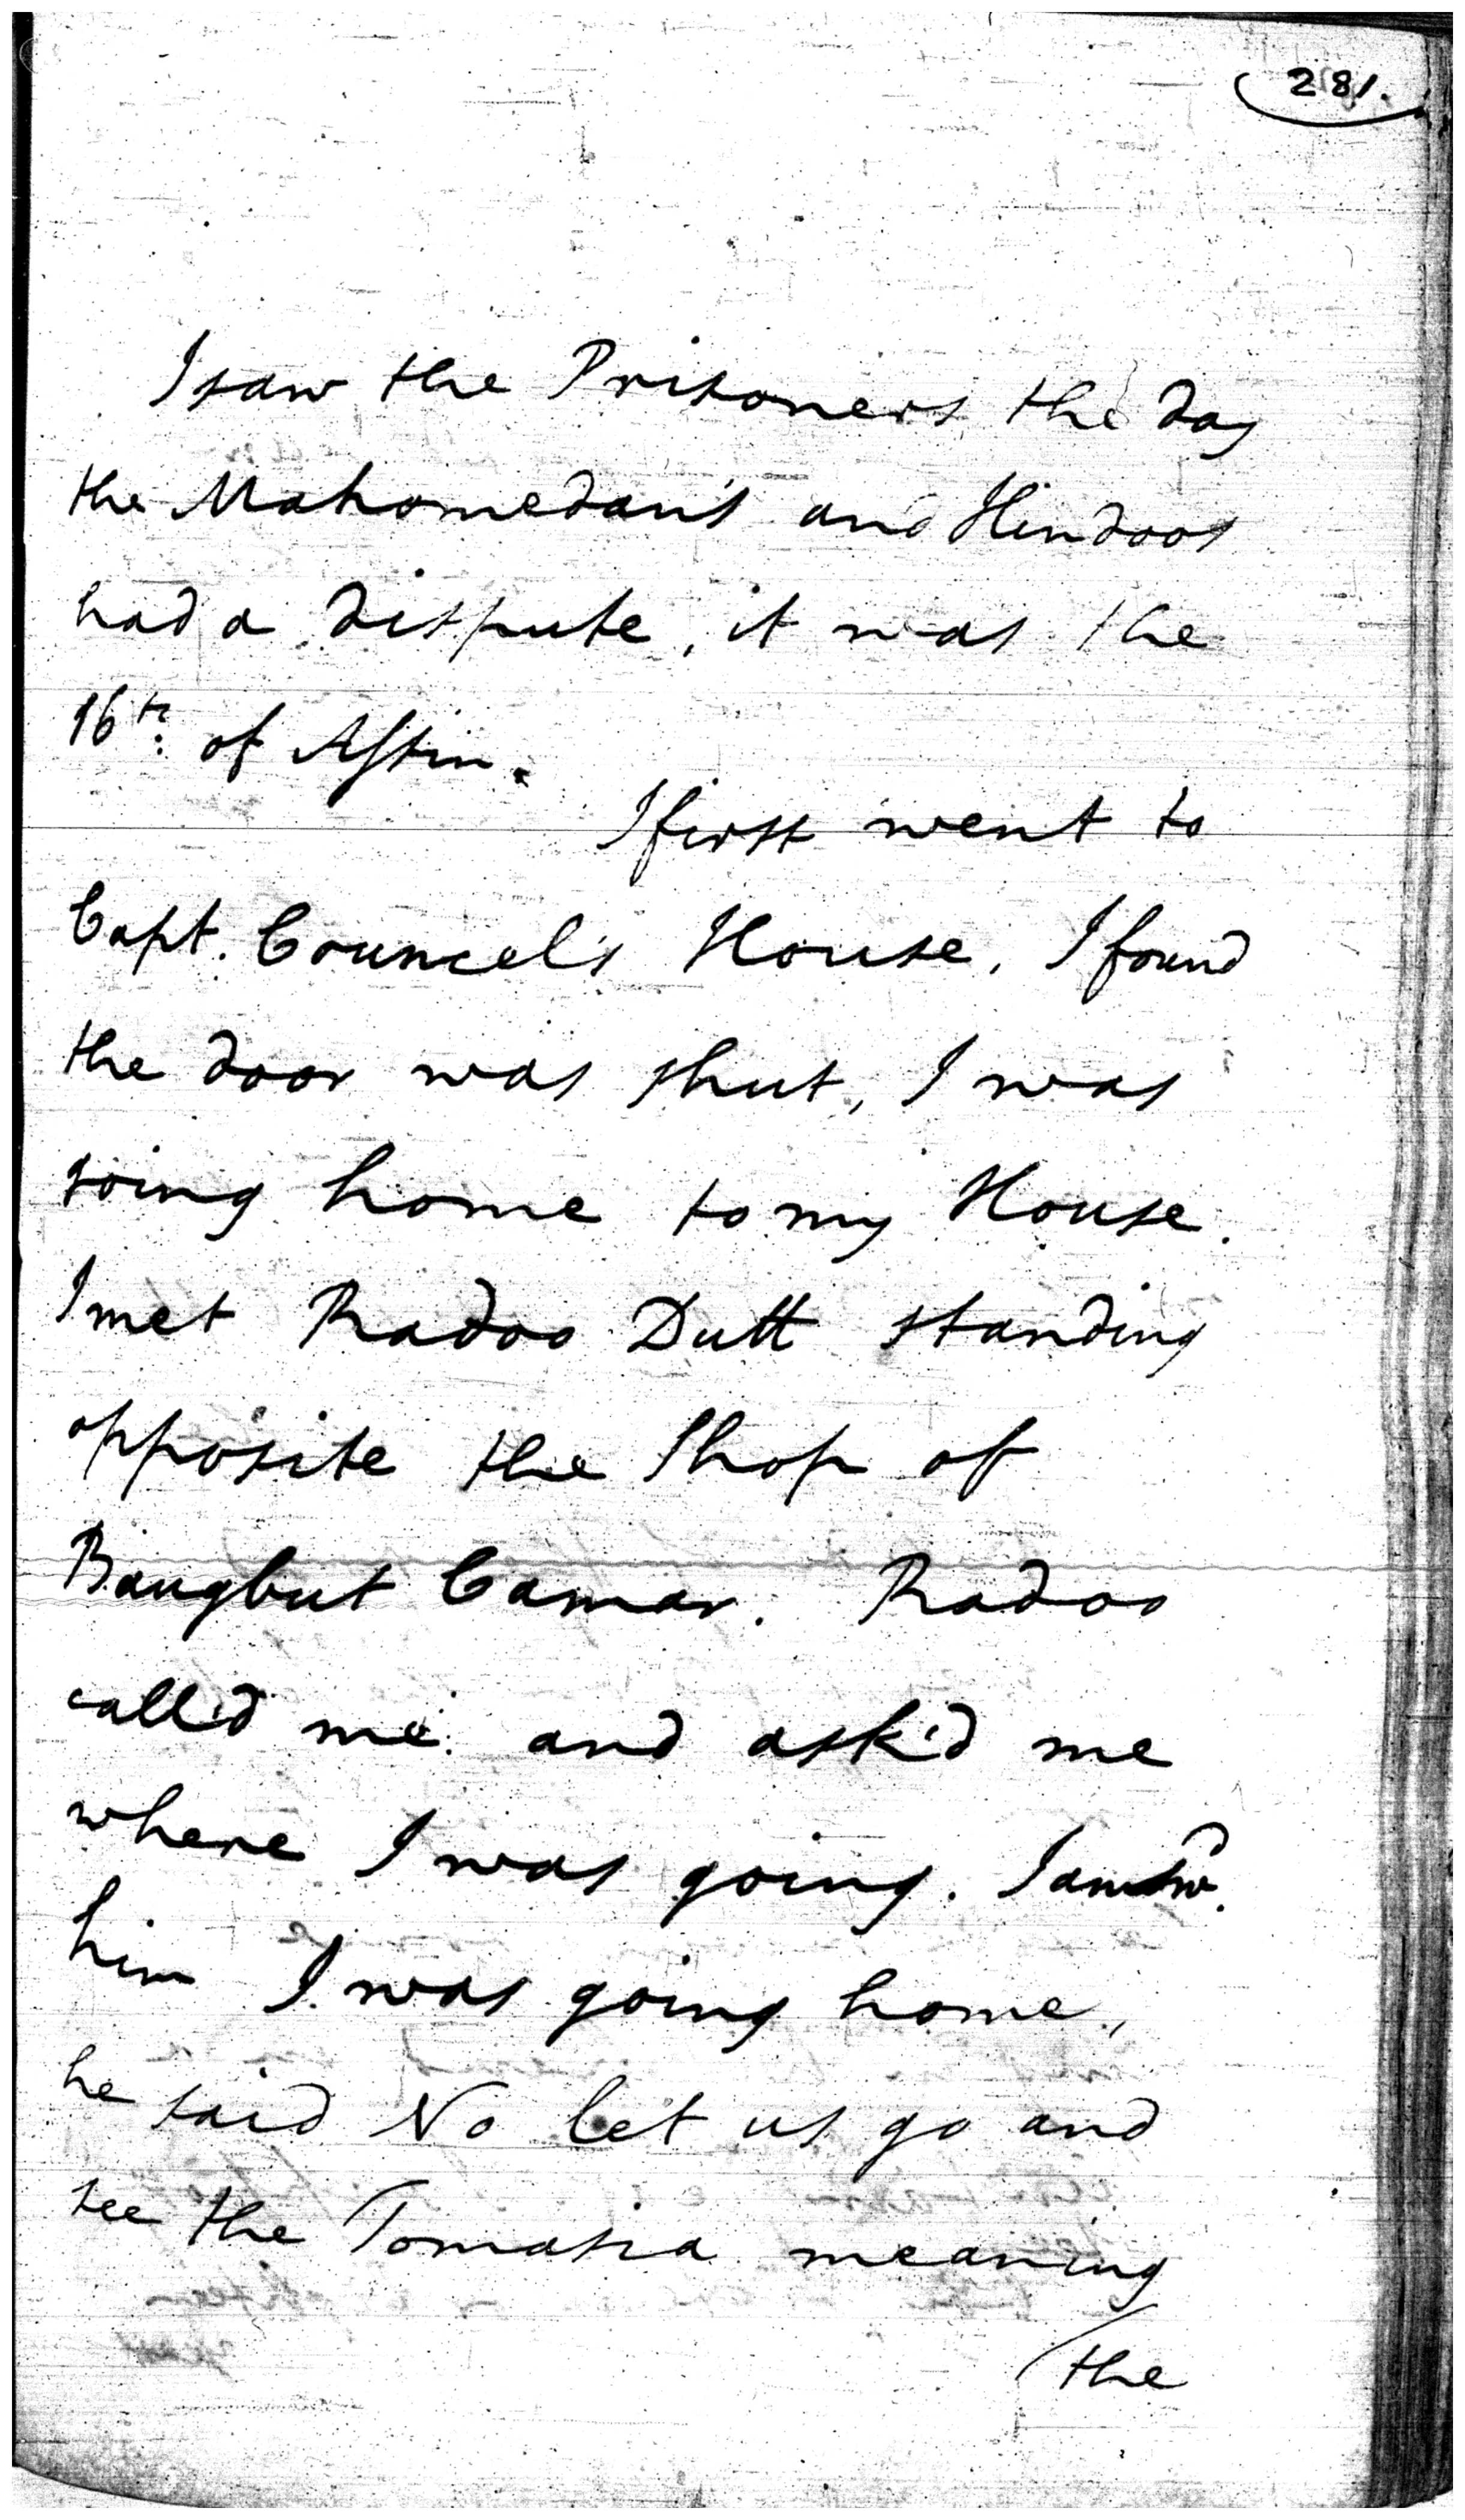 281.
I saw the Prisoners the day
the Mahomedan's and Hindoos
had a dispute, it was the
16th: of Assin.
I first went to
Capt. Councel's House, I found
the door was shut, I was
going home to my House.
I met Radoo Dutt standing
opposite the Shop of
Baugbut Camar. Radoo
call'd me and ask'd me
where I was going. I answd.
him I was going home,
he said No let us go and
see the Tomasia meaning
the